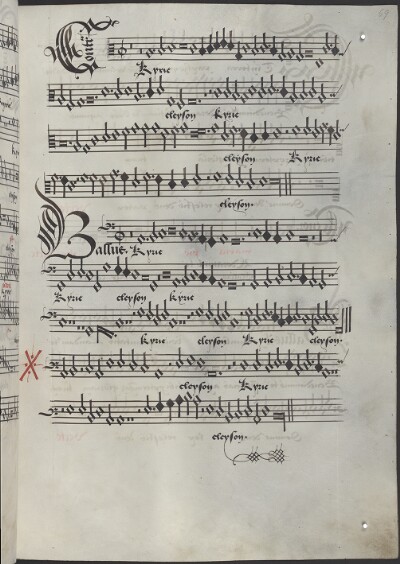 Contra
Kyrie
eleyson Kyrie
eleyson Kyrie
eleyson.
Bassus. Kyrie
Kyrie eleyson kyrie
kyrie eleyson Kyrie eleyson.
eleyson Kyrie
eleyson.